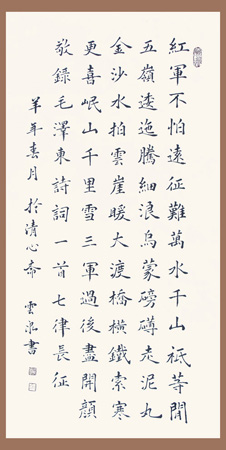 紅軍不怕遠征難萬水千山祇等閒
五嶺逶迤騰細浪烏蒙磅礴走泥丸
金沙水拍雲崖暖大渡橋橫鐵索寒
更喜岷山千里雪三軍過後盡開顏
敬錄毛澤東詩詞一首七律長征
羊年春月於清心齋 雲書